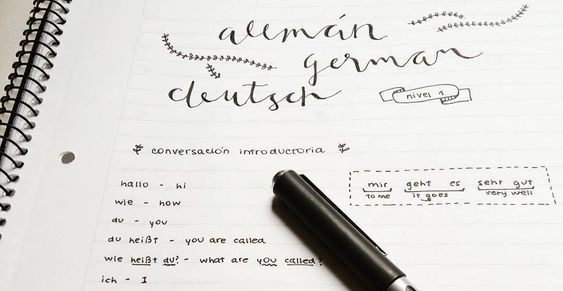 alemán
german
deutsch
nivel 1
conversación introductoria
hallo - hi
wie - how
du - you
du heißt - you are called
wie heißt du? - what are you called?
ich - I
mir geht es sehr gut
to me it goes very well